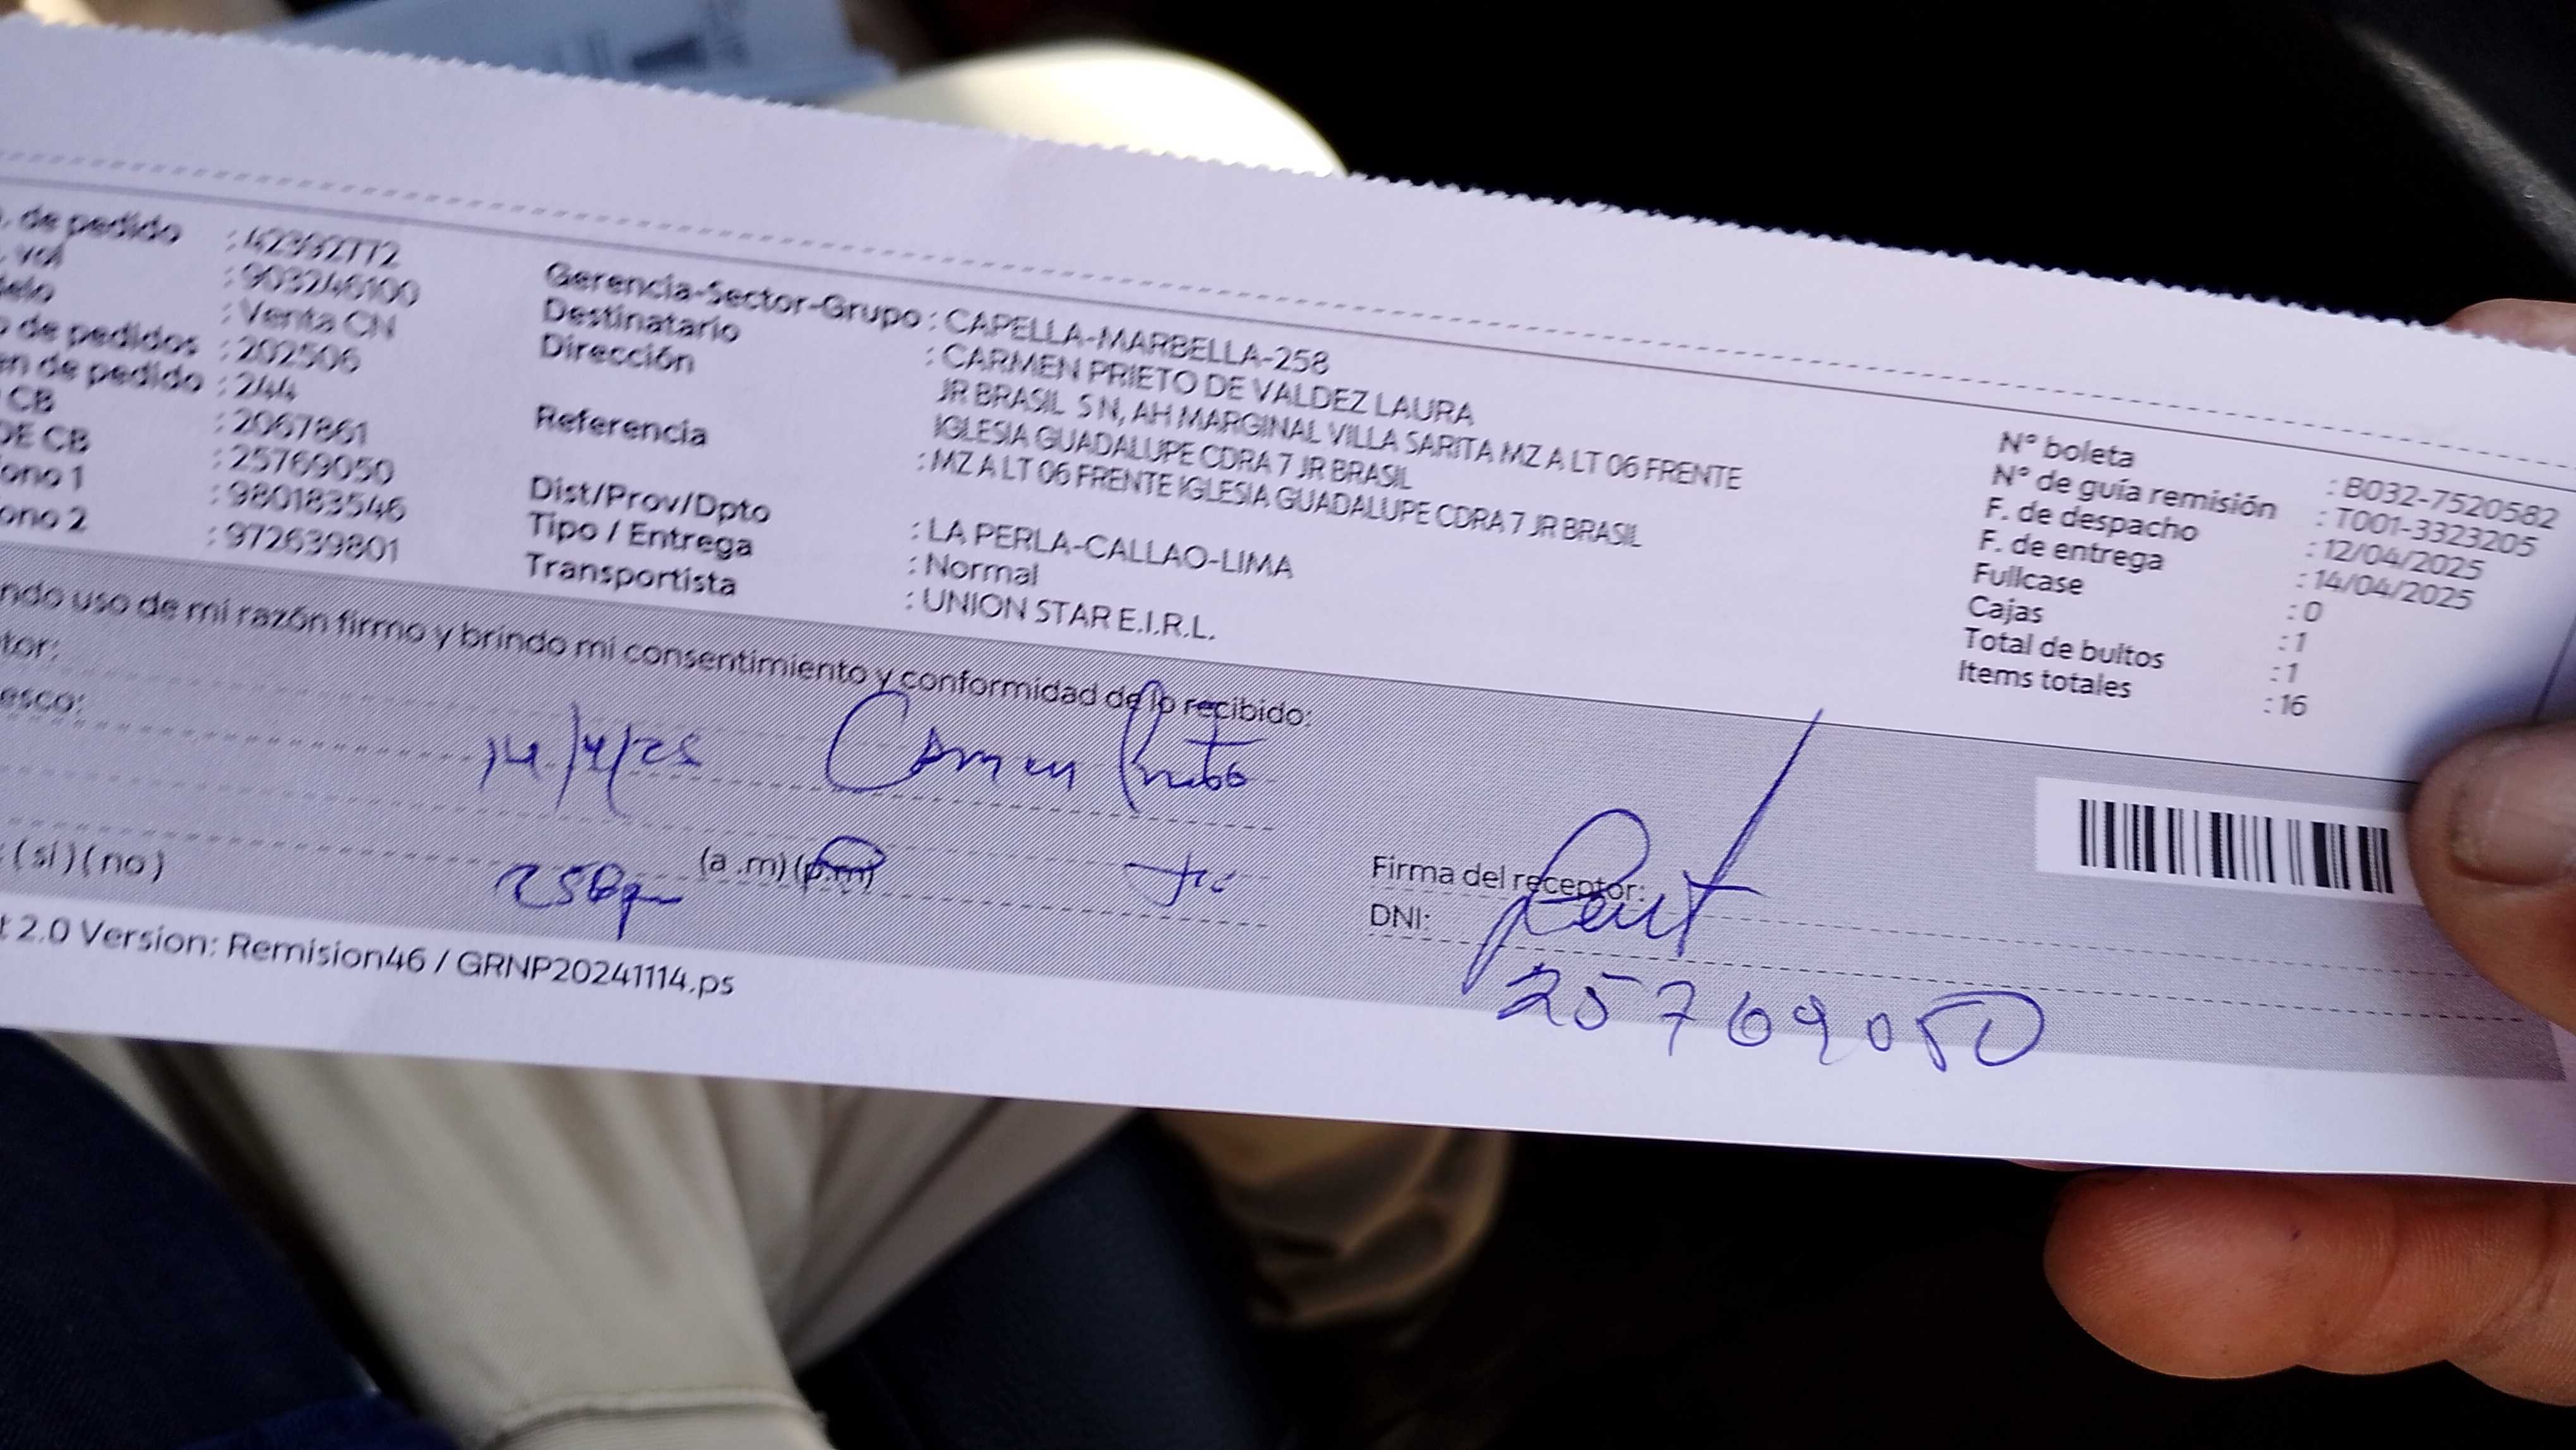 . de pedido : 42392772
. vol : 903246100
delo : Venta CN
o de pedidos : 202506
en de pedido : 244
CB : 2067861
DE CB : 25769050
ono 1 : 980183546
ono 2 : 972639801
Gerencia-Sector-Grupo : CAPELLA-MARBELLA-258
Destinatario : CARMEN PRIETO DE VALDEZ LAURA
Dirección JR BRASIL S N, AH MARGINAL VILLA SARITA MZ A LT 06 FRENTE
IGLESIA GUADALUPE CDRA 7 JR BRASIL
Referencia : MZ A LT 06 FRENTE IGLESIA GUADALUPE CDRA 7 JR BRASIL
Dist/Prov/Dpto : LA PERLA-CALLAO-LIMA
Tipo / Entrega : Normal
Transportista : UNION STAR E.I.R.L.
N° boleta : B032-7520582
N° de guía remisión : T001-3323205
F. de despacho : 12/04/2025
F. de entrega : 14/04/2025
Fullcase : 0
Cajas : 1
Total de bultos : 1
Items totales : 16
ndo uso de mi razón firmo y brindo mi consentimiento y conformidad de lo recibido:
tor:
esco:
14/4/25 Carmen Prieto
: ( si ) ( no )
(a .m) (p.m)
Firma del receptor:
DNI:
25769050
t 2.0 Version: Remision46 / GRNP20241114.ps